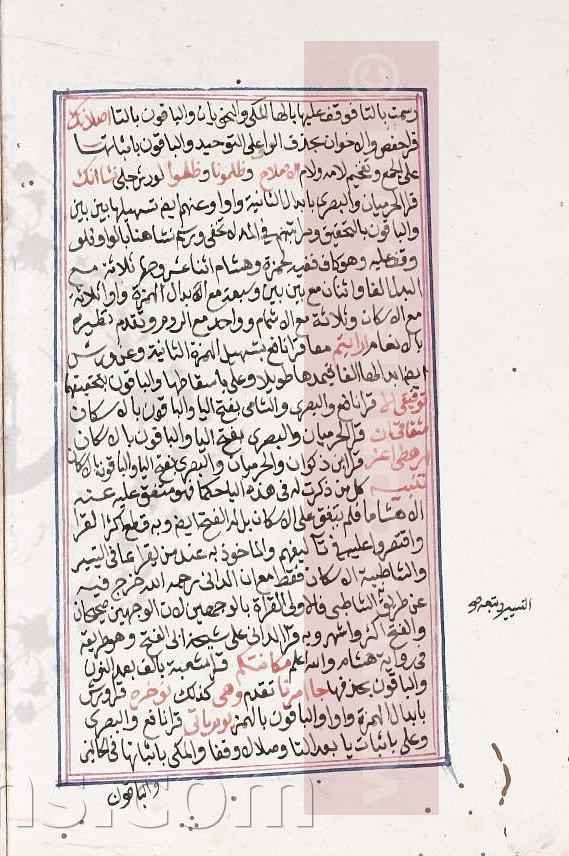 رسمت بالتا فوقف عليها بالها المكي والنحويان والباقون بالتا اصلاتك
قرا حفص والاخوان بحذف الواو على التوحيد والباقون باثباتها
على الجمع وتفخيم لامه ولام الاصلاح وظلمونا وظلموا لورش جلي نشا انك
قرا الحرميان والبصري بابدال الثانية واوا وعنهم ايضا تسهيلها بين بين
والباقون بالتحقيق ومراتبهم في المد لا تخفى ورسم نشا هنا بالواو فلو
وقف عليه وهو كاف ففيه لحمزة وهشام اثنا عشر وجها ثلاثة مع
البدل الفا واثنان مع بين بين وسبعة مع ابدال الهمزة واوا ثلاثة
مع الاسكان وثلاثة مع الاشمام وواحد مع الروم وتقدم نظيره
بالانعام ارايتم معا قرا نافع بتسهيل الهمزة الثانية وعن ورش
ايضا ابدالها الفا فيمدها طويلا وعلي باسقاطها والباقون بتحقيقها
توفيقي الا قرا نافع والبصري والشامي بفتح اليا والباقون بالاسكان
شقاقي ان قرا الحرميان والبصري بفتح اليا والباقون بالاسكان
ارهطي اعز قرا ابن ذكوان والحرميان والبصري بفتح اليا والباقون بالاسكان
تنبيه كل من ذكرت له في هذه اليا حكما فهو متفق عليه عنه
الا هشاما فلم يتفق على الاسكان بل له الفتح ايضا وبه قطع اكثر القرا
واقتصروا عليه في تآليفهم والماخوذ به عند من يقرا بما في التيسير
والشاطبية الاسكان فقط مع ان الداني رحمه الله خرج فيه
عن طريقه الشاطبي فالاولى القراة بالوجهين لان الوجهين صحيحان
والفتح اكثر واشهر وبه قرا الداني على شيخه ابي الفتح وهو طريقه
في رواية هشام والله اعلم مكانتكم قرا شعبة بالف بعد النون
والباقون بحذفها جا امرنا تقدم وهي كذلك نوخره قرا ورش
بابدال الهمزة واوا والباقون بالهمز يوم ياتي قرا نافع والبصري
وعلي باثبات يا بعد التا وصلا لا وقفا والمكي باثباتها في الحالين
والباقون
التيسير وتبعه